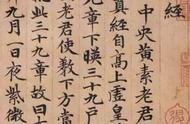 中央黄素老君
真經自高上虚皇
老君使教下方當
九章下暎三十九户
此三十九章故曰
九月一日夜紫微